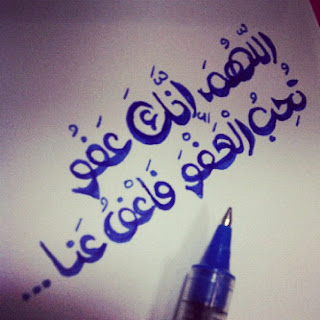 اللّهُمَ انَّكَ عَفوُ
تُحِبُ الْعَفْوَ فَاعْفُ عَنا...